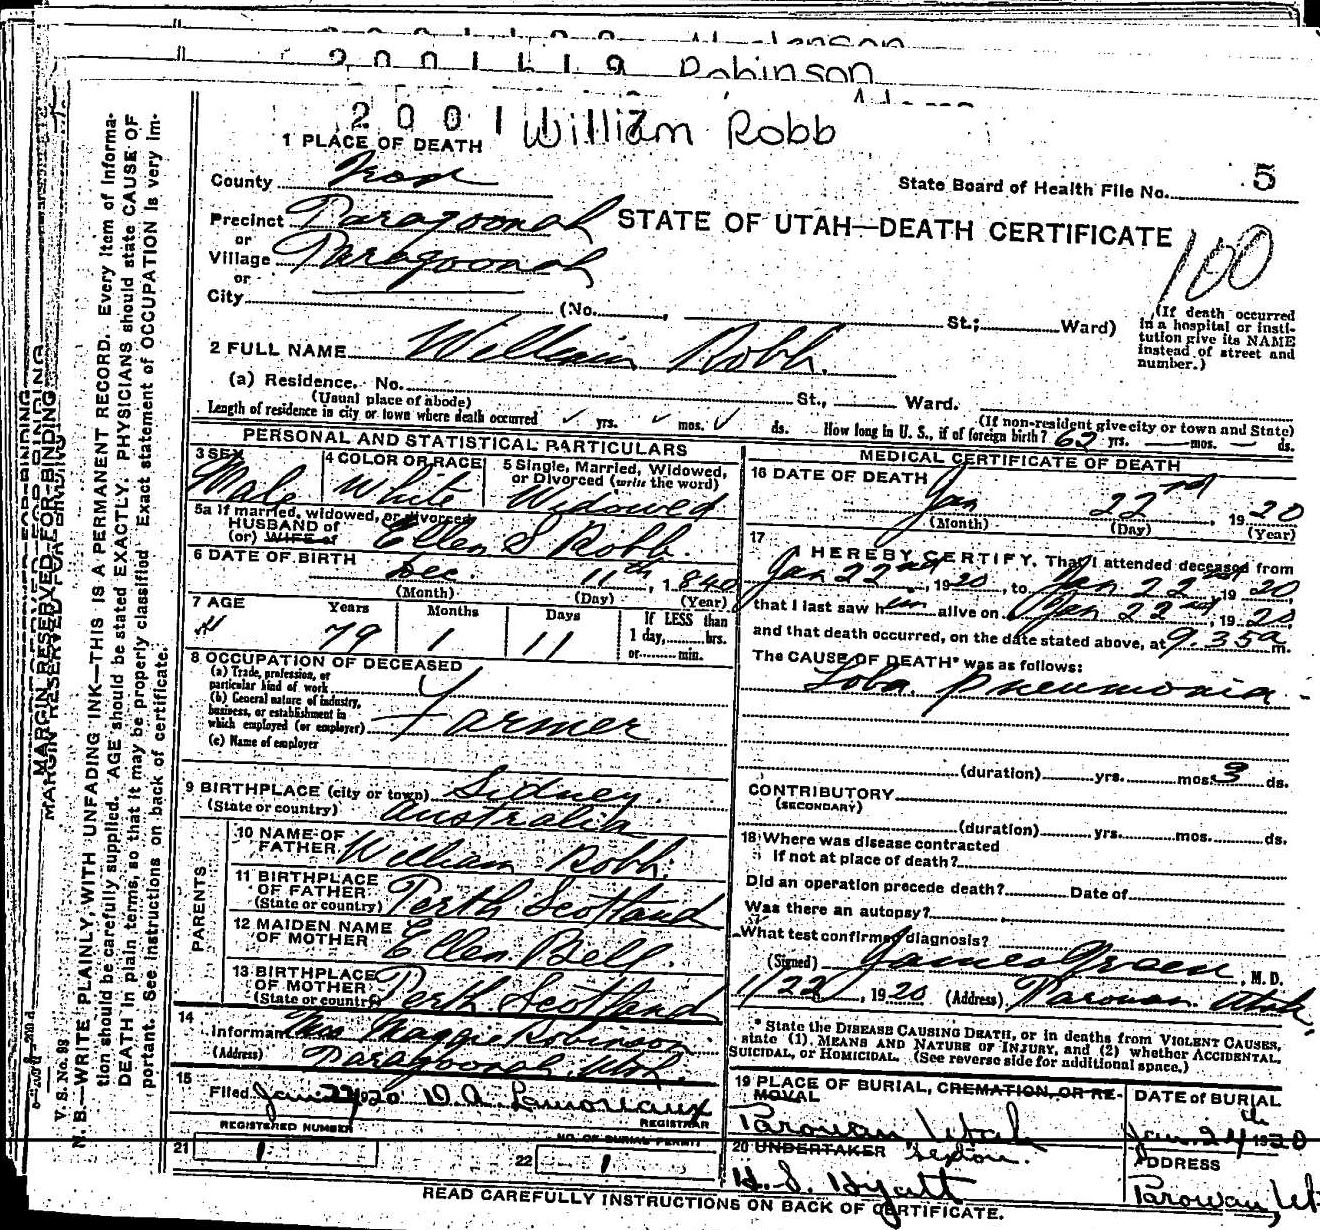 Robinson
2 0 0 1 1 1 9
2 0 0 1 1 1 7
William Robb
1 PLACE OF DEATH
County Iron
State Board of Health File No. 5
Precinct Paragoonah
STATE OF UTAH—DEATH CERTIFICATE
100
or
Village Paragoonah
or
City (No. , St.; Ward)
(If death occurred in a hospital or insti-
tution give its NAME
instead of street and
number.)
2 FULL NAME William Robb.
(a) Residence. No. St., Ward.
(Usual place of abode)
(If non-resident give city or town and State)
Length of residence in city or town where death occurred ✓ yrs. ✓ mos. ✓ ds. How long in U. S., if of foreign birth? 62 yrs. — mos. — ds.
PERSONAL AND STATISTICAL PARTICULARS
3 SEX Male
4 COLOR OR RACE White
5 Single, Married, Widowed,
or Divorced (write the word)
Widowed
5a If married, widowed, or divorced
HUSBAND of
(or) WIFE of Ellen S Robb.
6 DATE OF BIRTH
Dec. 11th, 1840
(Month) (Day) (Year)
7 AGE Years Months Days If LESS than
79 1 11 1 day, hrs.
or min.
8 OCCUPATION OF DECEASED
(a) Trade, profession, or
particular kind of work
(b) General nature of industry,
business, or establishment in
which employed (or employer) Farmer
(c) Name of employer
9 BIRTHPLACE (city or town) Sidney.
(State or country) Australia
PARENTS
10 NAME OF
FATHER William Robb.
11 BIRTHPLACE
OF FATHER
(State or country) Perth Scotland
12 MAIDEN NAME
OF MOTHER Ellen Bell.
13 BIRTHPLACE
OF MOTHER
(State or country) Perth Scotland
14
Informant Mrs Maggie Robinson
(Address) Paragoonah, Utah.
15
Filed Jan 22 1920 D. A. Lamoreaux
REGISTRAR
REGISTERED NUMBER
21 1
NO. OF BURIAL PERMIT
22 1
MEDICAL CERTIFICATE OF DEATH
16 DATE OF DEATH
Jan 22nd, 1920
(Month) (Day) (Year)
17
I HEREBY CERTIFY, That I attended deceased from
Jan 22nd, 1920, to Jan 22nd 1920,
that I last saw him alive on Jan 22nd, 1920,
and that death occurred, on the date stated above, at 9.35 a m.
The CAUSE OF DEATH* was as follows:
Loba. pneumonia -
(duration) yrs. mos. 3 ds.
CONTRIBUTORY
(SECONDARY)
(duration) yrs. mos. ds.
18 Where was disease contracted
if not at place of death?
Did an operation precede death? Date of
Was there an autopsy?
What test confirmed diagnosis?
(Signed) James Green, M. D.
1/22, 1920 (Address) Parowan Utah.
* State the DISEASE CAUSING DEATH, or in deaths from VIOLENT CAUSES,
state (1) MEANS AND NATURE OF INJURY, and (2) whether ACCIDENTAL,
SUICIDAL, or HOMICIDAL. (See reverse side for additional space.)
19 PLACE OF BURIAL, CREMATION, OR RE-
MOVAL
Parowan, Utah
DATE of BURIAL
Jan. 24th 1920
20 UNDERTAKER Sexton.
H. S. Hyatt
ADDRESS
Parowan, Ut
READ CAREFULLY INSTRUCTIONS ON BACK OF CERTIFICATE.
MARGIN RESERVED FOR BINDING
V. S. No. 98
N. B.—WRITE PLAINLY, WITH UNFADING INK—THIS IS A PERMANENT RECORD. Every item of informa-
tion should be carefully supplied. AGE should be stated EXACTLY. PHYSICIANS should state CAUSE OF
DEATH in plain terms, so that it may be properly classified. Exact statement of OCCUPATION is very im-
portant. See instructions on back of certificate.